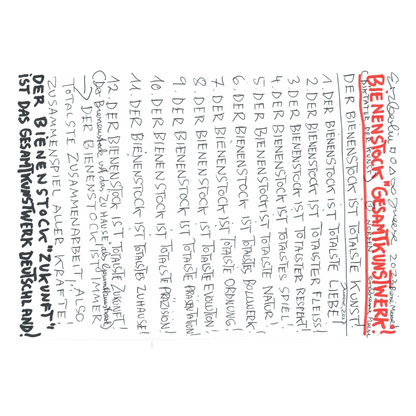 BIENENSTOCK "GESAMTKUNSTWERK!
DER BIENENSTOCK IST TOTALSTE KUNST!
1. DER BIENENSTOCK IST TOTALSTE LIEBE!
2. DER BIENENSTOCK IST TOTALSTER FLEISS!
3. DER BIENENSTOCK IST TOTALSTER RESPEKT!
4. DER BIENENSTOCK IST TOTALSTES SPIEL!
5. DER BIENENSTOCK IST TOTALSTE NATUR!
6. DER BIENENSTOCK IST TOTALSTES BOLLWERK!
7. DER BIENENSTOCK IST TOTALSTE ORDNUNG!
8. DER BIENENSTOCK IST TOTALSTE EVOLUTION!
9. DER BIENENSTOCK IST TOTALSTE PRÄSENTATION!
10. DER BIENENSTOCK IST TOTALSTE PRÄZISION!
11. DER BIENENSTOCK IST TOTALSTES ZUHAUSE!
12. DER BIENENSTOCK IST TOTALSTE ZUKUNFT!
DER BIENENSTOCK IST IMMER
TOTALSTE ZUSAMMENARBEIT, ALSO
ZUSAMMENSPIEL ALLER KRÄFTE!
DER BIENENSTOCK "ZUKUNFT"
IST DAS GESAMTKUNSTWERK DEUTSCHLAND!